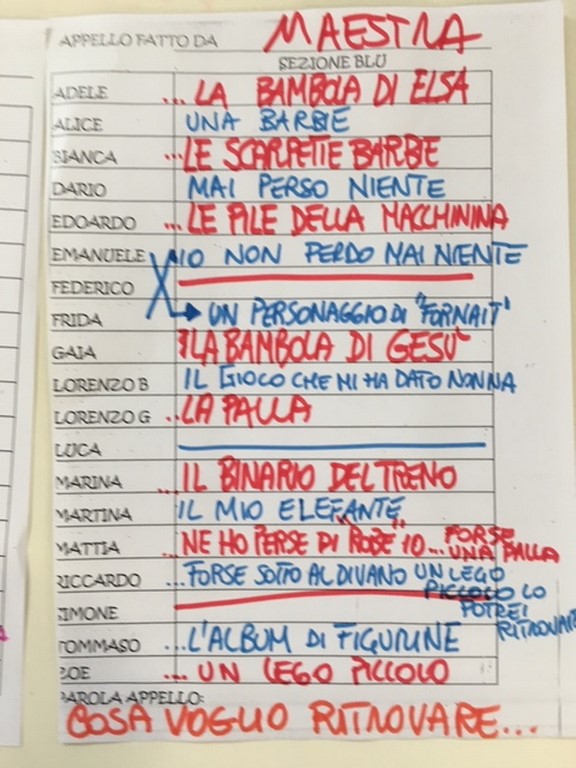 APPELLO FATTO DA MAESTRA
SEZIONE BLU
ADELE ... LA BAMBOLA DI ELSA
ALICE UNA BARBIE
BIANCA ... LE SCARPETTE BARBIE
DARIO MAI PERSO NIENTE
EDOARDO ... LE PILE DELLA MACCHININA
EMANUELE IO NON PERDO MAI NIENTE
FEDERICO
FRIDA UN PERSONAGGIO DI "FORNAIT"
GAIA LA BAMBOLA DI GESÙ
LORENZO B IL GIOCO CHE MI HA DATO NONNA
LORENZO G ..LA PALLA
LUCA
MARINA ... IL BINARIO DEL TRENO
MARTINA IL MIO ELEFANTE
MATTIA ... NE HO PERSE DI "ROBE" IO... FORSE UNA PALLA
RICCARDO ...FORSE SOTTO AL DIVANO UN LEGO PICCOLO LO POTREI RITROVARE
SIMONE
TOMMASO ...L'ALBUM DI FIGURINE
ZOE ... UN LEGO PICCOLO
PAROLA APPELLO:
COSA VOGLIO RITROVARE...